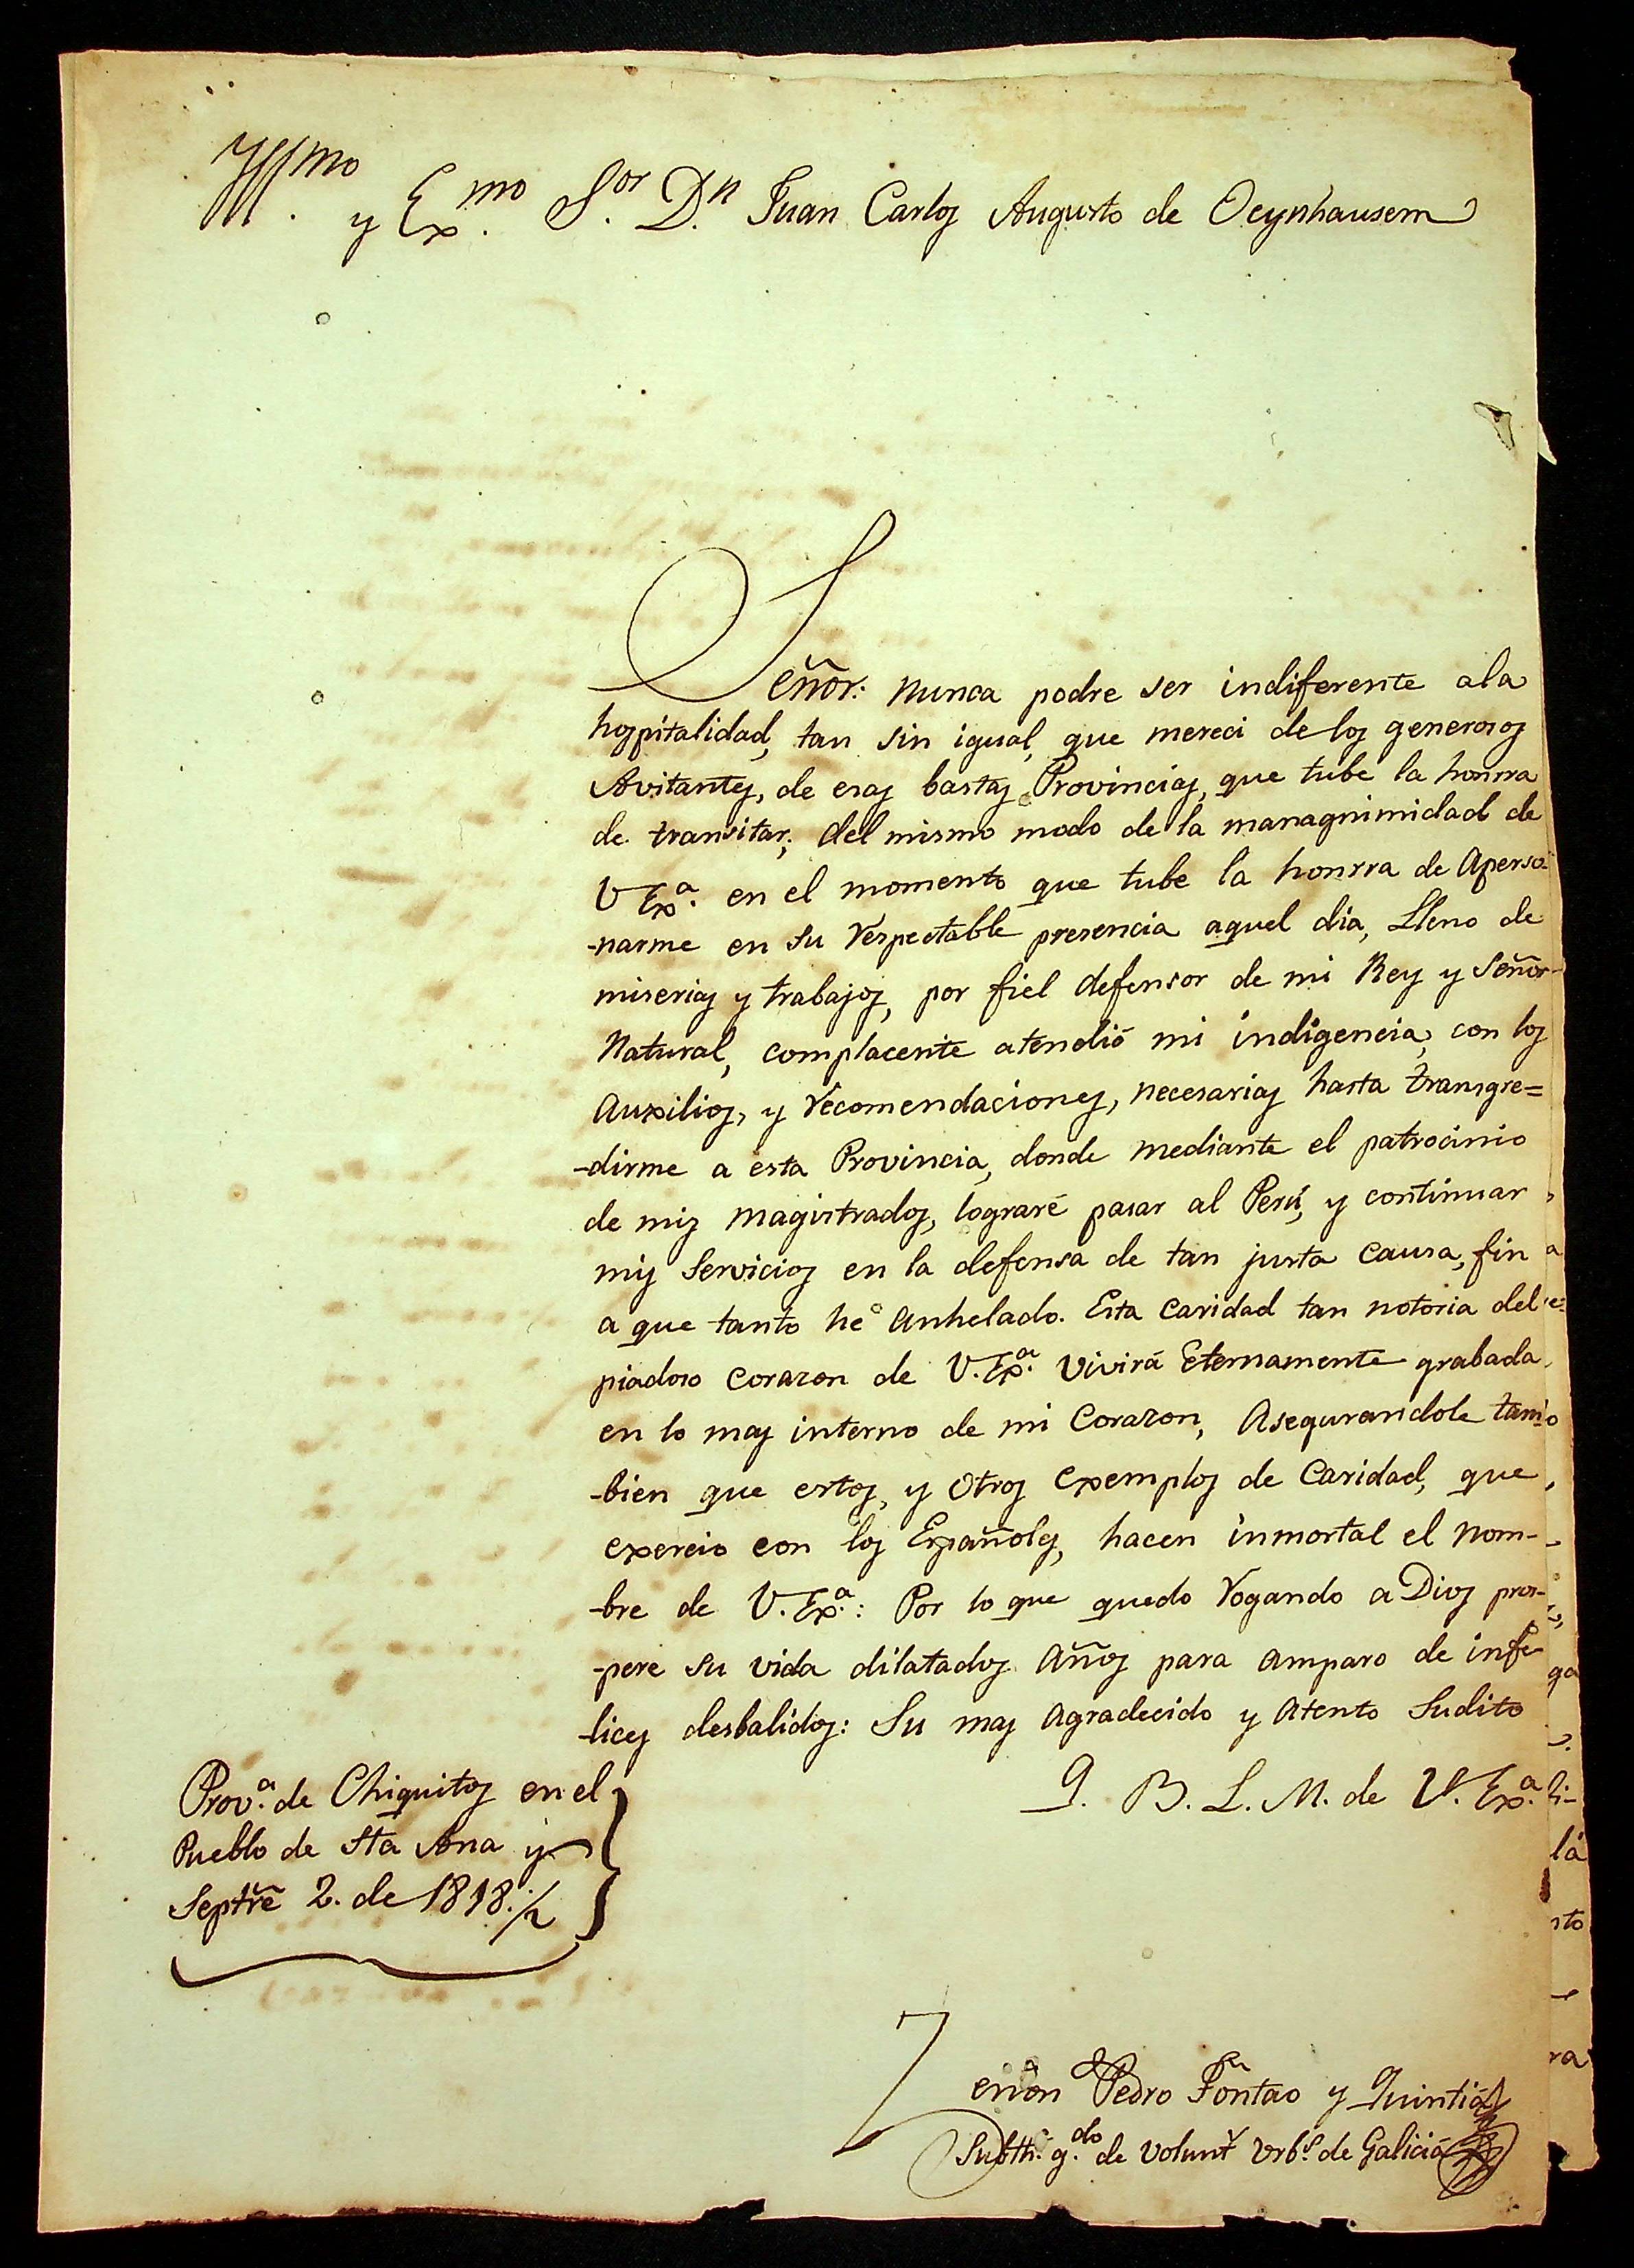 Yll.mo y Ex.mo S.or D.n Juan Carlos Augusto de Oeynhausem
Señor: Nunca podre ser indiferente ala
hospitalidad, tan sin igual, que mereci de los generosos
Avitantes, de esas bastas Provincias, que tube la honrra
de transitar; del mismo modo de la managnimidad de
V Ex.a en el momento que tube la honrra de Aperso-
-narme en su respectable presencia aquel dia, Lleno de
miserias y trabajos, por fiel defensor de mi Rey y Señor
Natural, complacente atendió mi indigencia, con los
Auxilios, y recomendaciones, necesarias hasta transgre=
-dirme a esta Provincia, donde mediante el patrocinio
de mis magistrados, lograré pasar al Perú, y continuar
mis servicios en la defensa de tan justa causa, fin
a que tanto he Anhelado. Esta caridad tan notoria del
piadoso corazon de V. Ex.a vivirá Eternamente grabada
en lo mas interno de mi Corazon, Asegurandole tam-
-bien que estos, y otros Exemplos de Caridad, que
exercio con los Españoles, hacen inmortal el nom-
-bre de V. Ex.a: Por lo que quedo rogando a Dios pros-
-pere su vida dilatados Años para amparo de infe-
-lices desbalidos: Su mas Agradecido y Atento Sudito
Q. B. L. M. de V. Ex.a
Prov.a de Chiquitos en el
Pueblo de Sta Ana y
Septre 2. de 1818./2
Zenon Pedro Fontao y Quintiá
Subth. g.do de Volunt Urb.s de Galicia